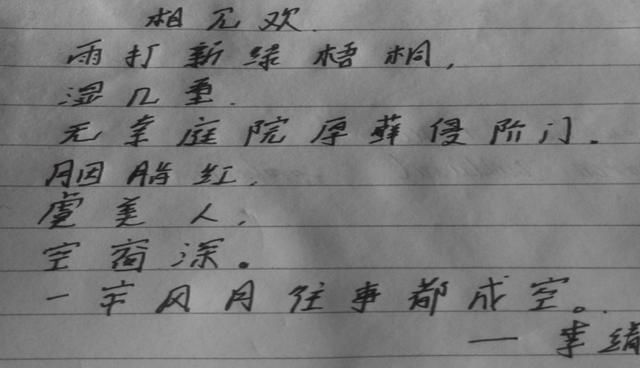 相见欢
雨打新绿梧桐,
湿几重.
无辜庭院厚藓侵阶门.
胭脂红,
虞美人,
空窗深。
一宇风月往事都成空。
— 李绩